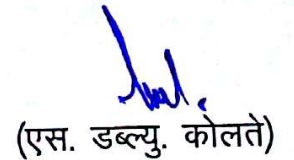 (एस. डब्ल्यु. कोलते)